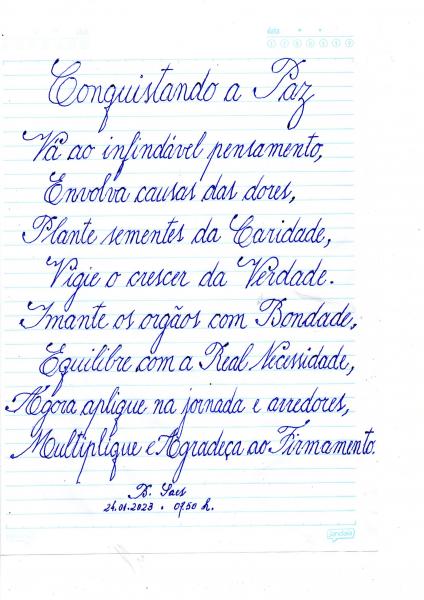 data
Conquistando a Paz
Vá ao infindável pensamento,
Envolva causas das dores,
Plante sementes da Caridade,
Vigie o crescer da Verdade.
Imante os orgãos com Bondade,
Equilibre com a Real Necessidade,
Agora aplique na jornada e arredores,
Multiplique e Agradeça ao Firmamento.
B. Saes
24.01.2023 • 07:50 h.
jandaia